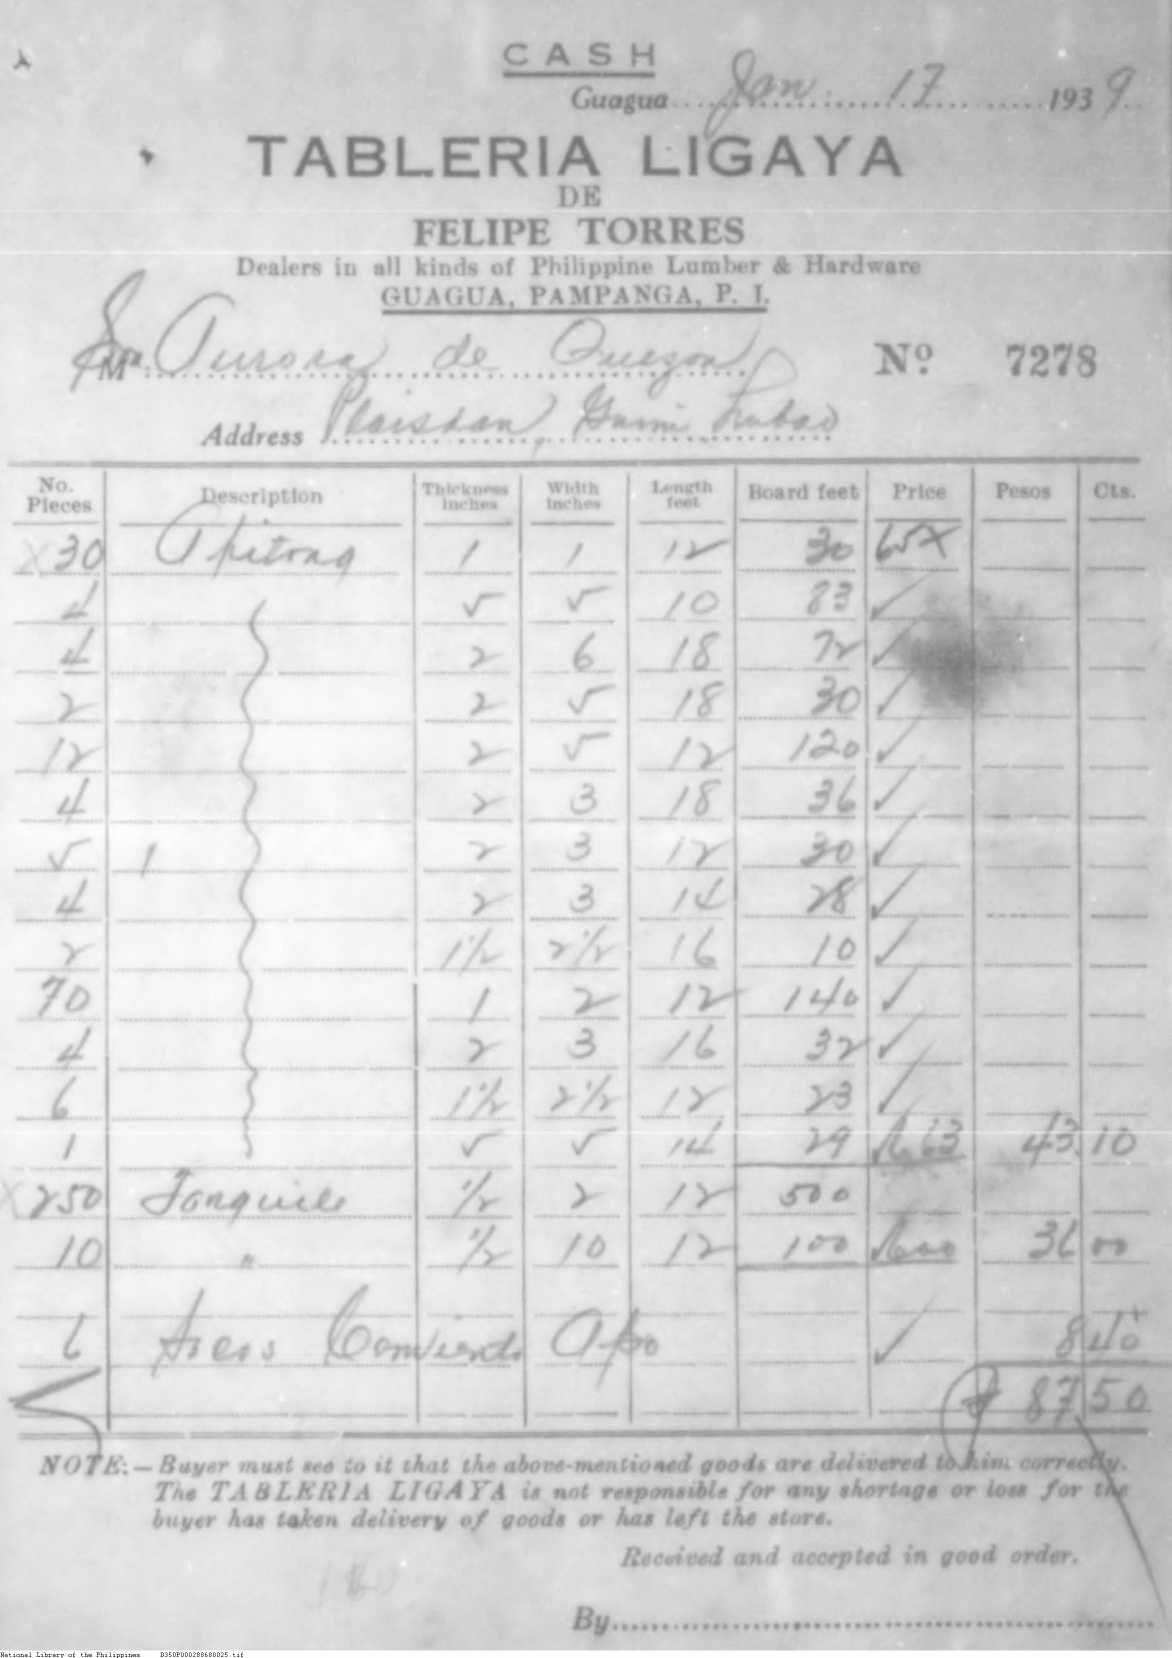 CASH
Guagua Jan. 17 1939
TABLERIA LIGAYA
DE
FELIPE TORRES
Dealers in all kinds of Philippine Lumber & Hardware
GUAGUA, PAMPANGA, P. I.
Sra. Aurora de Quezon Nº 7278
Address Lubao
No. Pieces Description Thickness inches Width inches Length feet Board feet Price Pesos Cts.
x 30 Apitong 1 1 12 30 65x
4 5 5 10 83 ✓
4 2 6 18 72 ✓
2 2 5 18 30 ✓
12 2 5 12 120 ✓
4 2 3 18 36 ✓
5 2 3 12 30 ✓
4 2 3 14 28 ✓
2 1½ 2½ 16 10 ✓
70 1 2 12 140 ✓
4 2 3 16 32 ✓
6 1½ 2½ 12 23 ✓
1 5 5 14 29 663 43.10
x 250 Tanguile ½ 2 12 500
10 " ½ 10 12 100 600 36 00
6 Sacos Apo ✓ 8 40
₱ 87 50
NOTE:—Buyer must see to it that the above-mentioned goods are delivered to him correctly.
The TABLERIA LIGAYA is not responsible for any shortage or loss for the
buyer has taken delivery of goods or has left the store.
Received and accepted in good order.
By
National Library of the Philippines D350P000288680025.tif